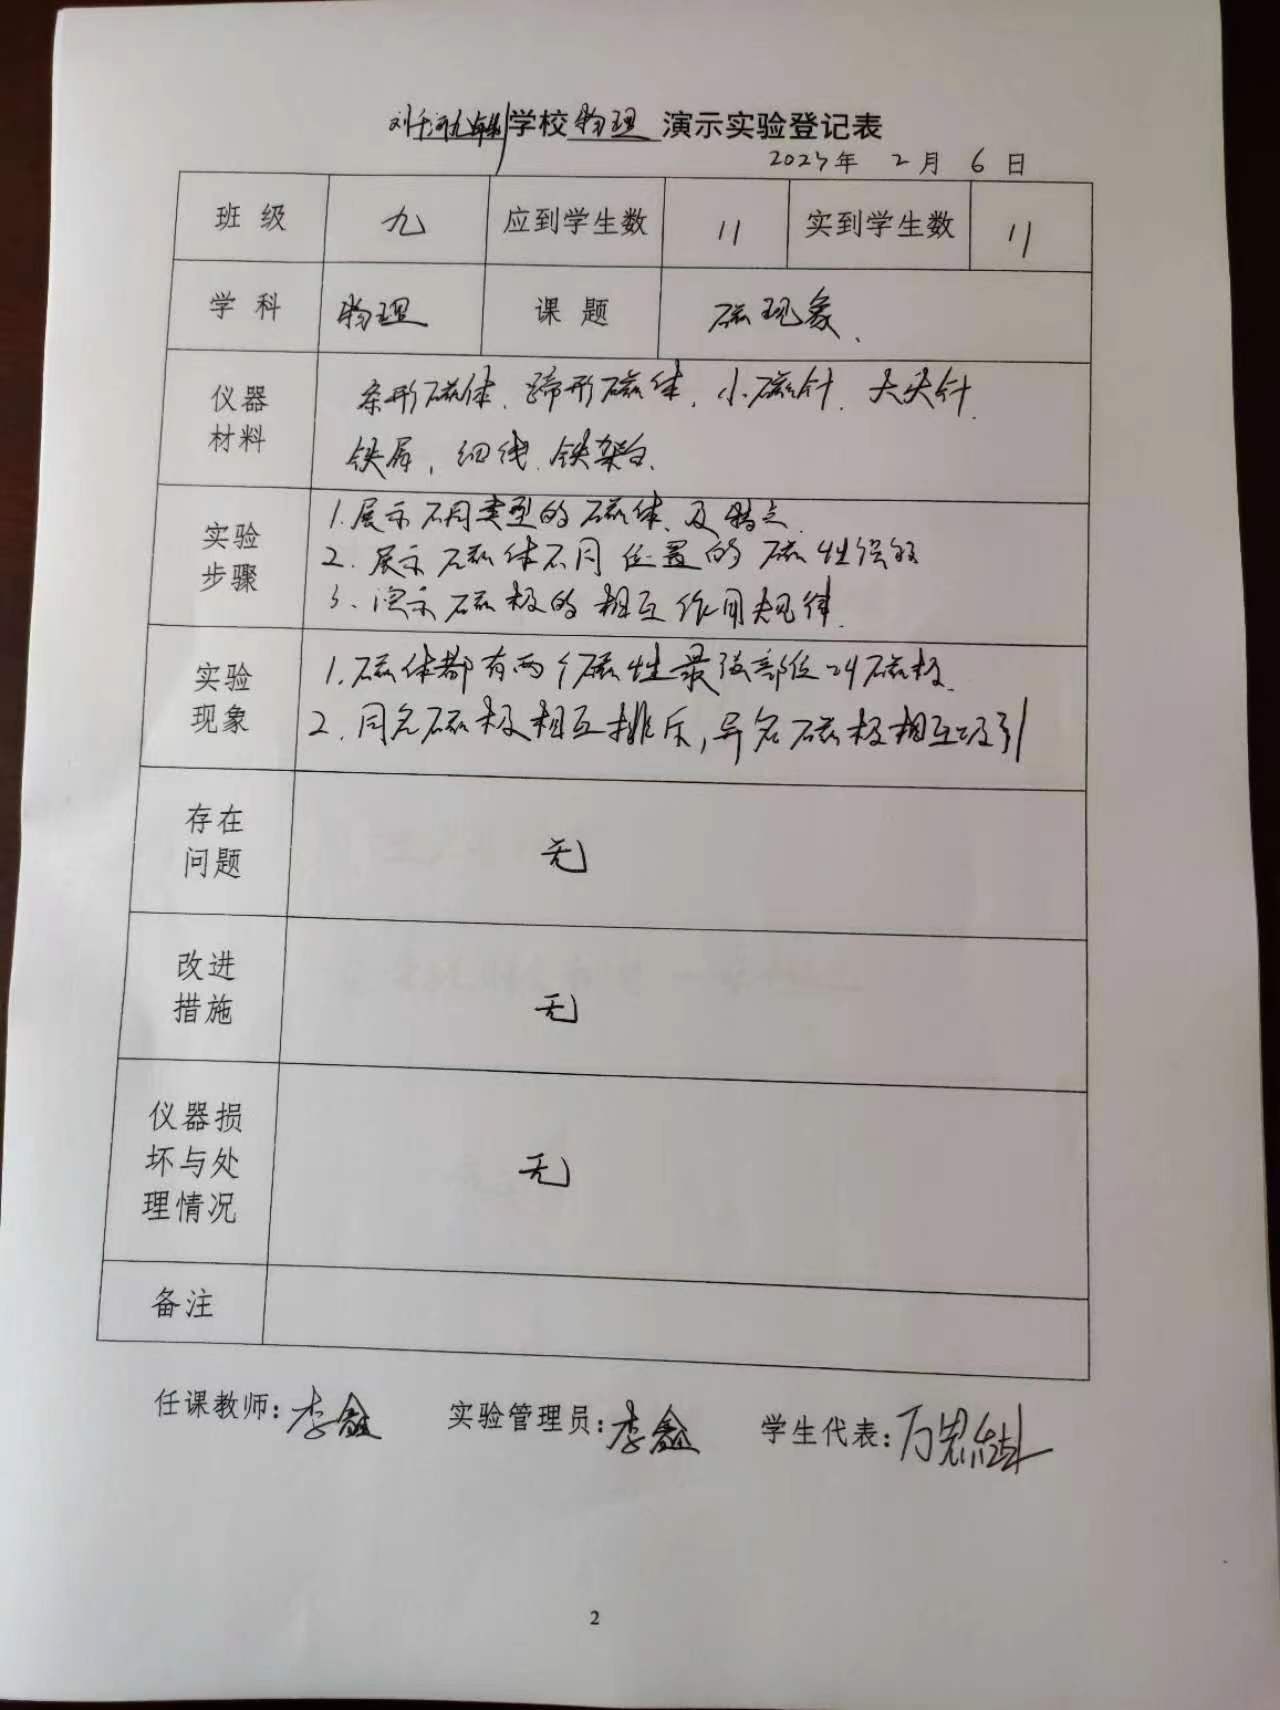 刘千河九年制学校物理演示实验登记表
2025年 2月 6日
班级 九 应到学生数 11 实到学生数 11
学科 物理 课题 磁现象、
仪器材料 条形磁体、蹄形磁体、小磁针、大头针
铁屑、细线、铁架台.
实验步骤 1.展示不同类型的磁体、及特点.
2.展示磁体不同位置的磁性强弱
3、演示磁极的相互作用规律.
实验现象 1.磁体都有两个磁性最强部位叫磁极.
2.同名磁极相互排斥,异名磁极相互吸引
存在问题 无
改进措施 无
仪器损坏与处理情况 无
备注
任课教师:李鑫 实验管理员:李鑫 学生代表:万思
2